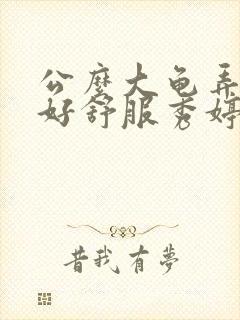 公麽大龟弄
好舒服秀婷
昔我有夢